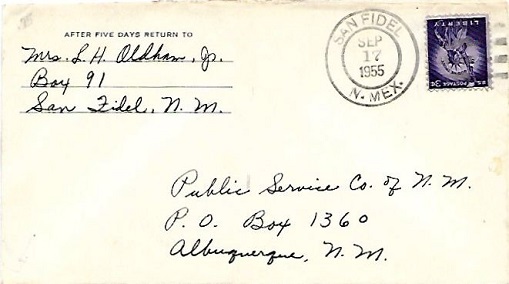 AFTER FIVE DAYS RETURN TO
Mrs. L. H. Oldham, Jr.
Box 91
San Fidel, N. M.
SAN FIDEL
SEP
17
1955
N. MEX.
LIBERTY
U.S. POSTAGE 3¢
Public Service Co. of N. M.
P. O. Box 1360
Albuquerque, N. M.